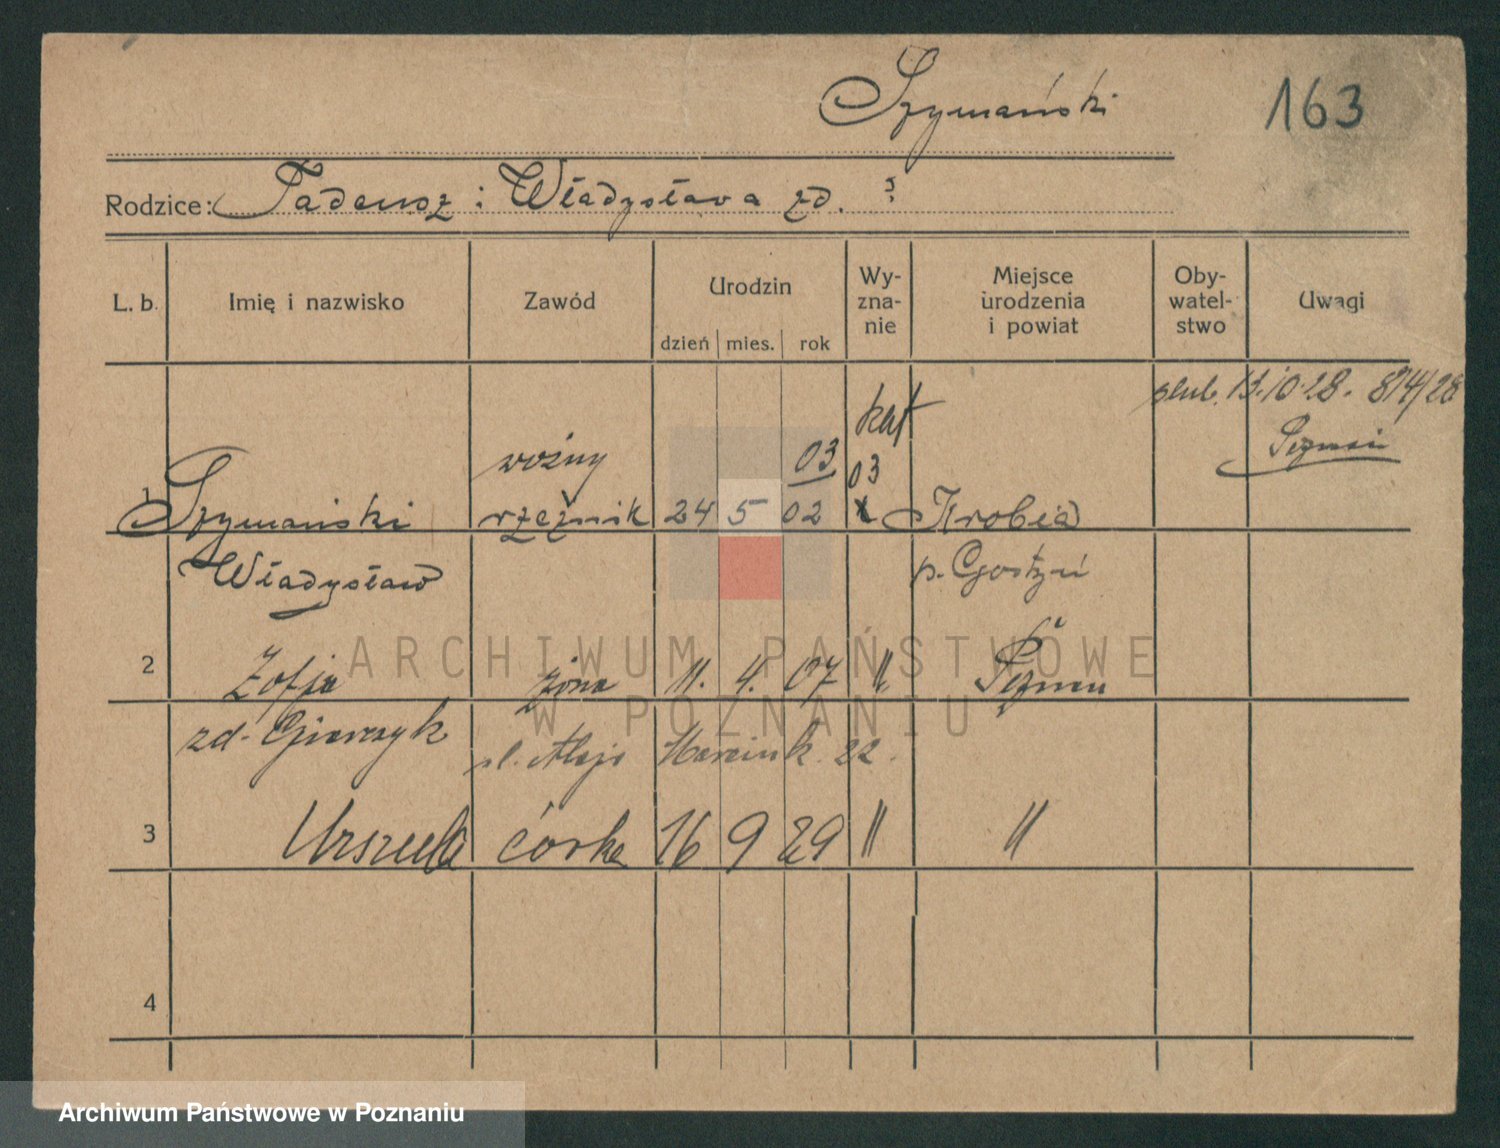 Szymański
163
Rodzice: Tadeusz i Władysława zd. ?
L. b. Imię i nazwisko Zawód Urodzin Wy-zna-nie Miejsce urodzenia i powiat Oby-watel-stwo Uwagi
dzień mies. rok
ślub. 13.10.28. 814/28
Poznań
kat
woźny 03 03
1 Szymański rzeźnik 24 5 02 x Krobia
Władysław p. Gostyń
2 Zofja żona 11. 4. 07 " Poznań
zd.
Marcink. 22.
3 Urszula córka 16 9 29 " "
4
ARCHIWUM PAŃSTWOWE
W POZNANIU
Archiwum Państwowe w Poznaniu